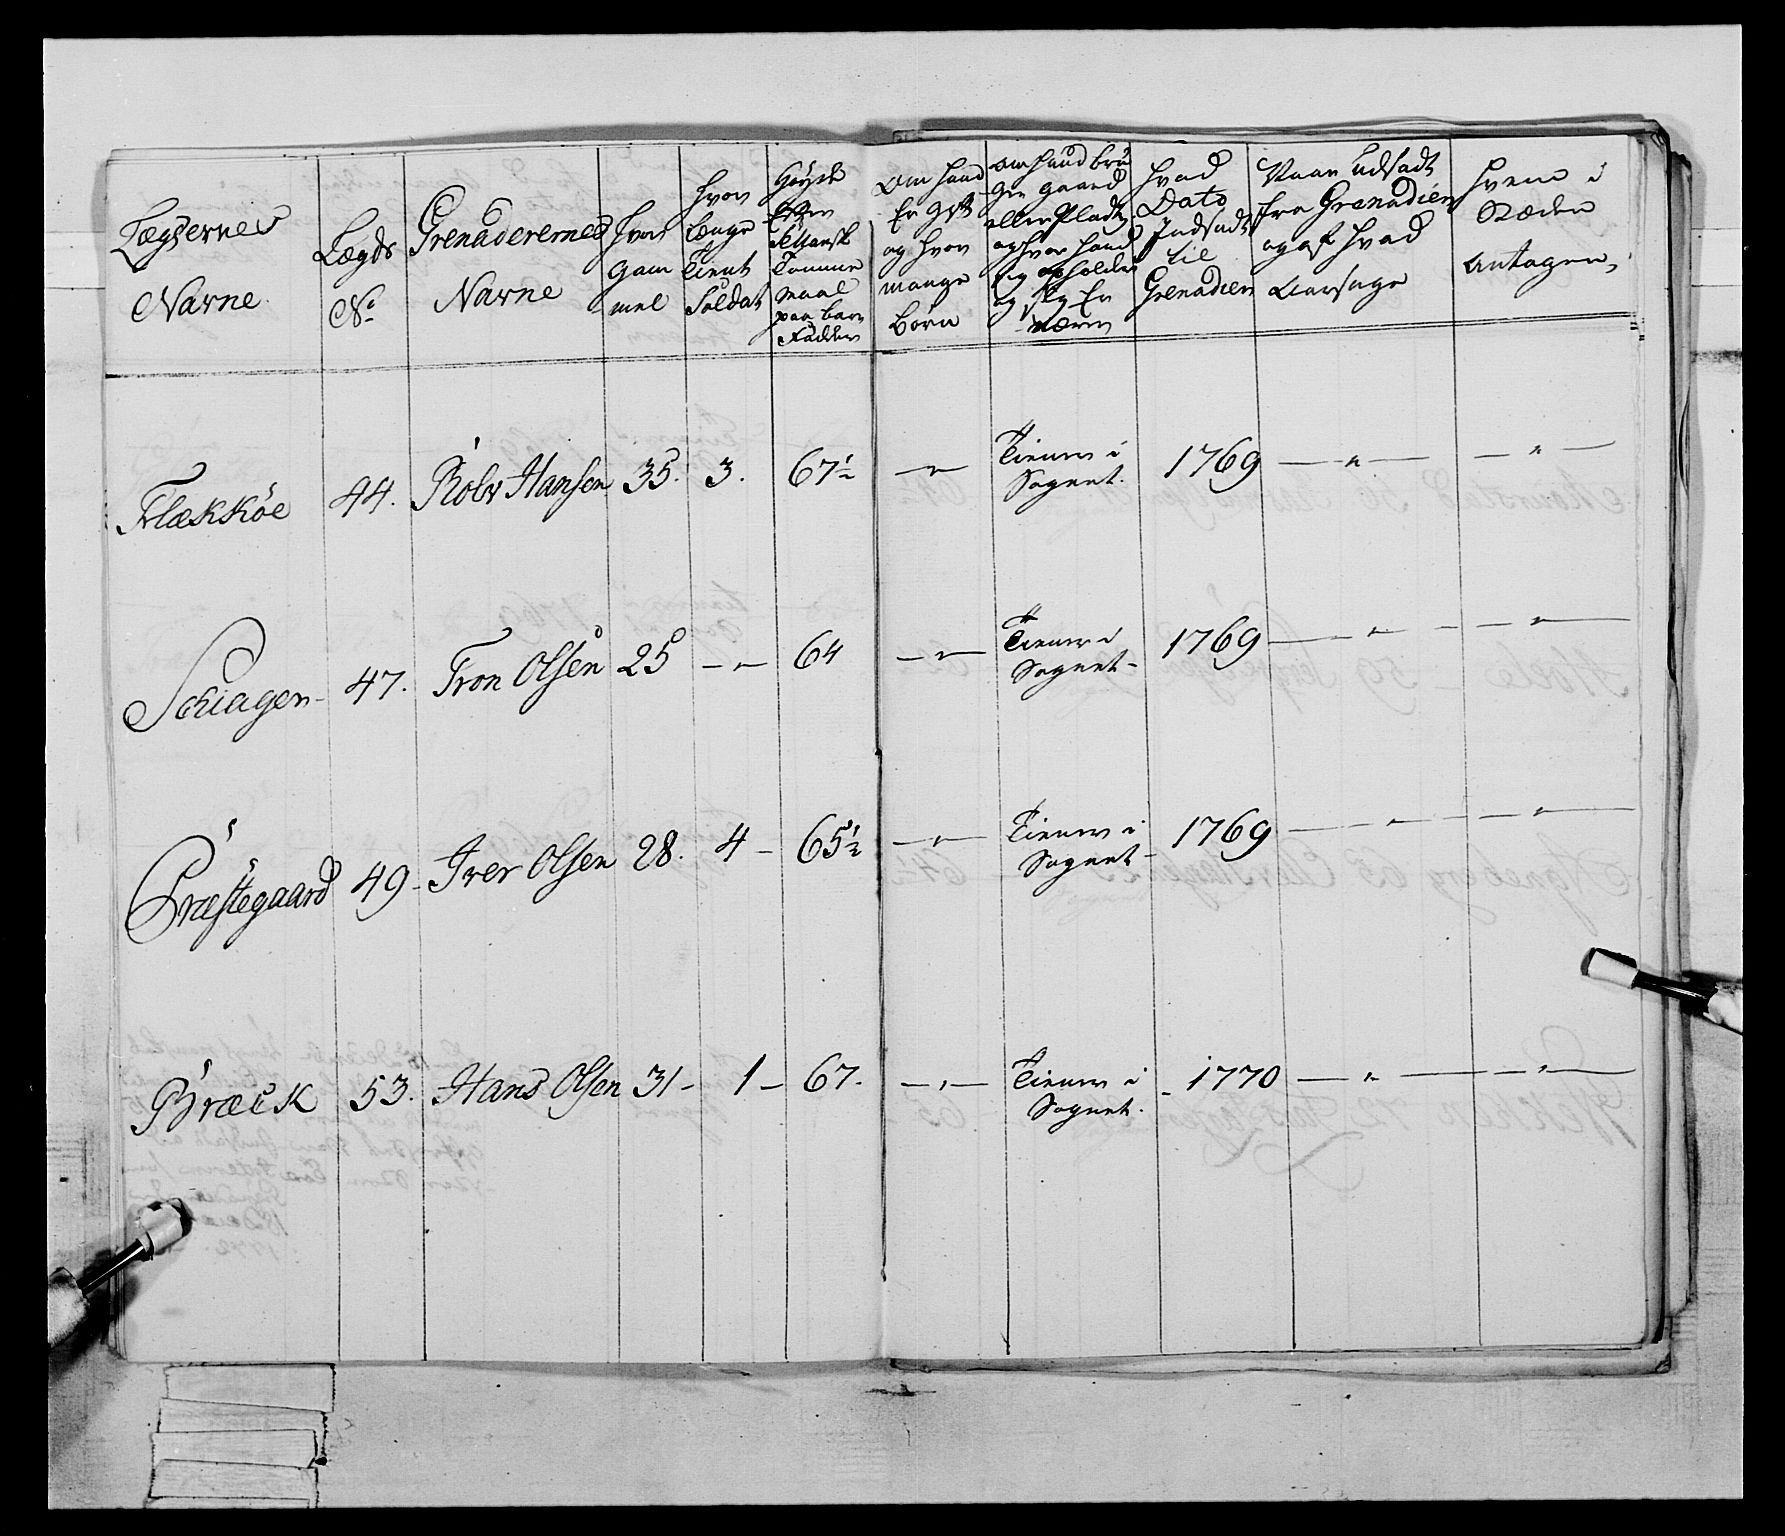 Lægdernes
Navne
Lægds
No
Grenaderernes
Navne
hvor
gam
mel
hvor
Længe
Tient
Soldat
Høyde
efter
Siellansk
Tomme
maal
paa bare
Fødder
om hand
er gift
og hvor
mange
børn
om hand bru
ger gaard
eller Pladtz
og hvor hand
sig opholder
og sig er
nærer
hvad
Dato
Indsadt
til
Grenadier
Naar udsadt
fra Grenadier
og af hvad
aarsage
hvem i
stæden
antagen,
Flækkøe 44. Rolv Hansen 35. 3. 67½ — " — Tiener i Sognet. 1769 — " — — " —
Schiagen 47. Tron Olsen 25 — " — 64 — " — Tiener i Sognet — 1769 — " — — " —
Præstegaard 49 — Iver Olsen 28. 4 — 65½ — " — Tiener i Sognet — 1769 — " — — " —
Bræck 53. Hans Olsen 31 — 1 — 67. — " — Tiener i Sognet. — 1770 — " — — " —